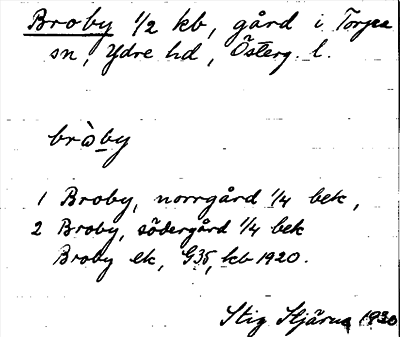 Broby 1/2 kb, gård i Torpa
sn, Ydre hd, Österg. l.
brò̱by
1 Broby, norrgård 1/4 bek,
2 Broby, södergård 1/4 bek
Broby ek, G35, kb 1920.
Stig Stjärna 1930